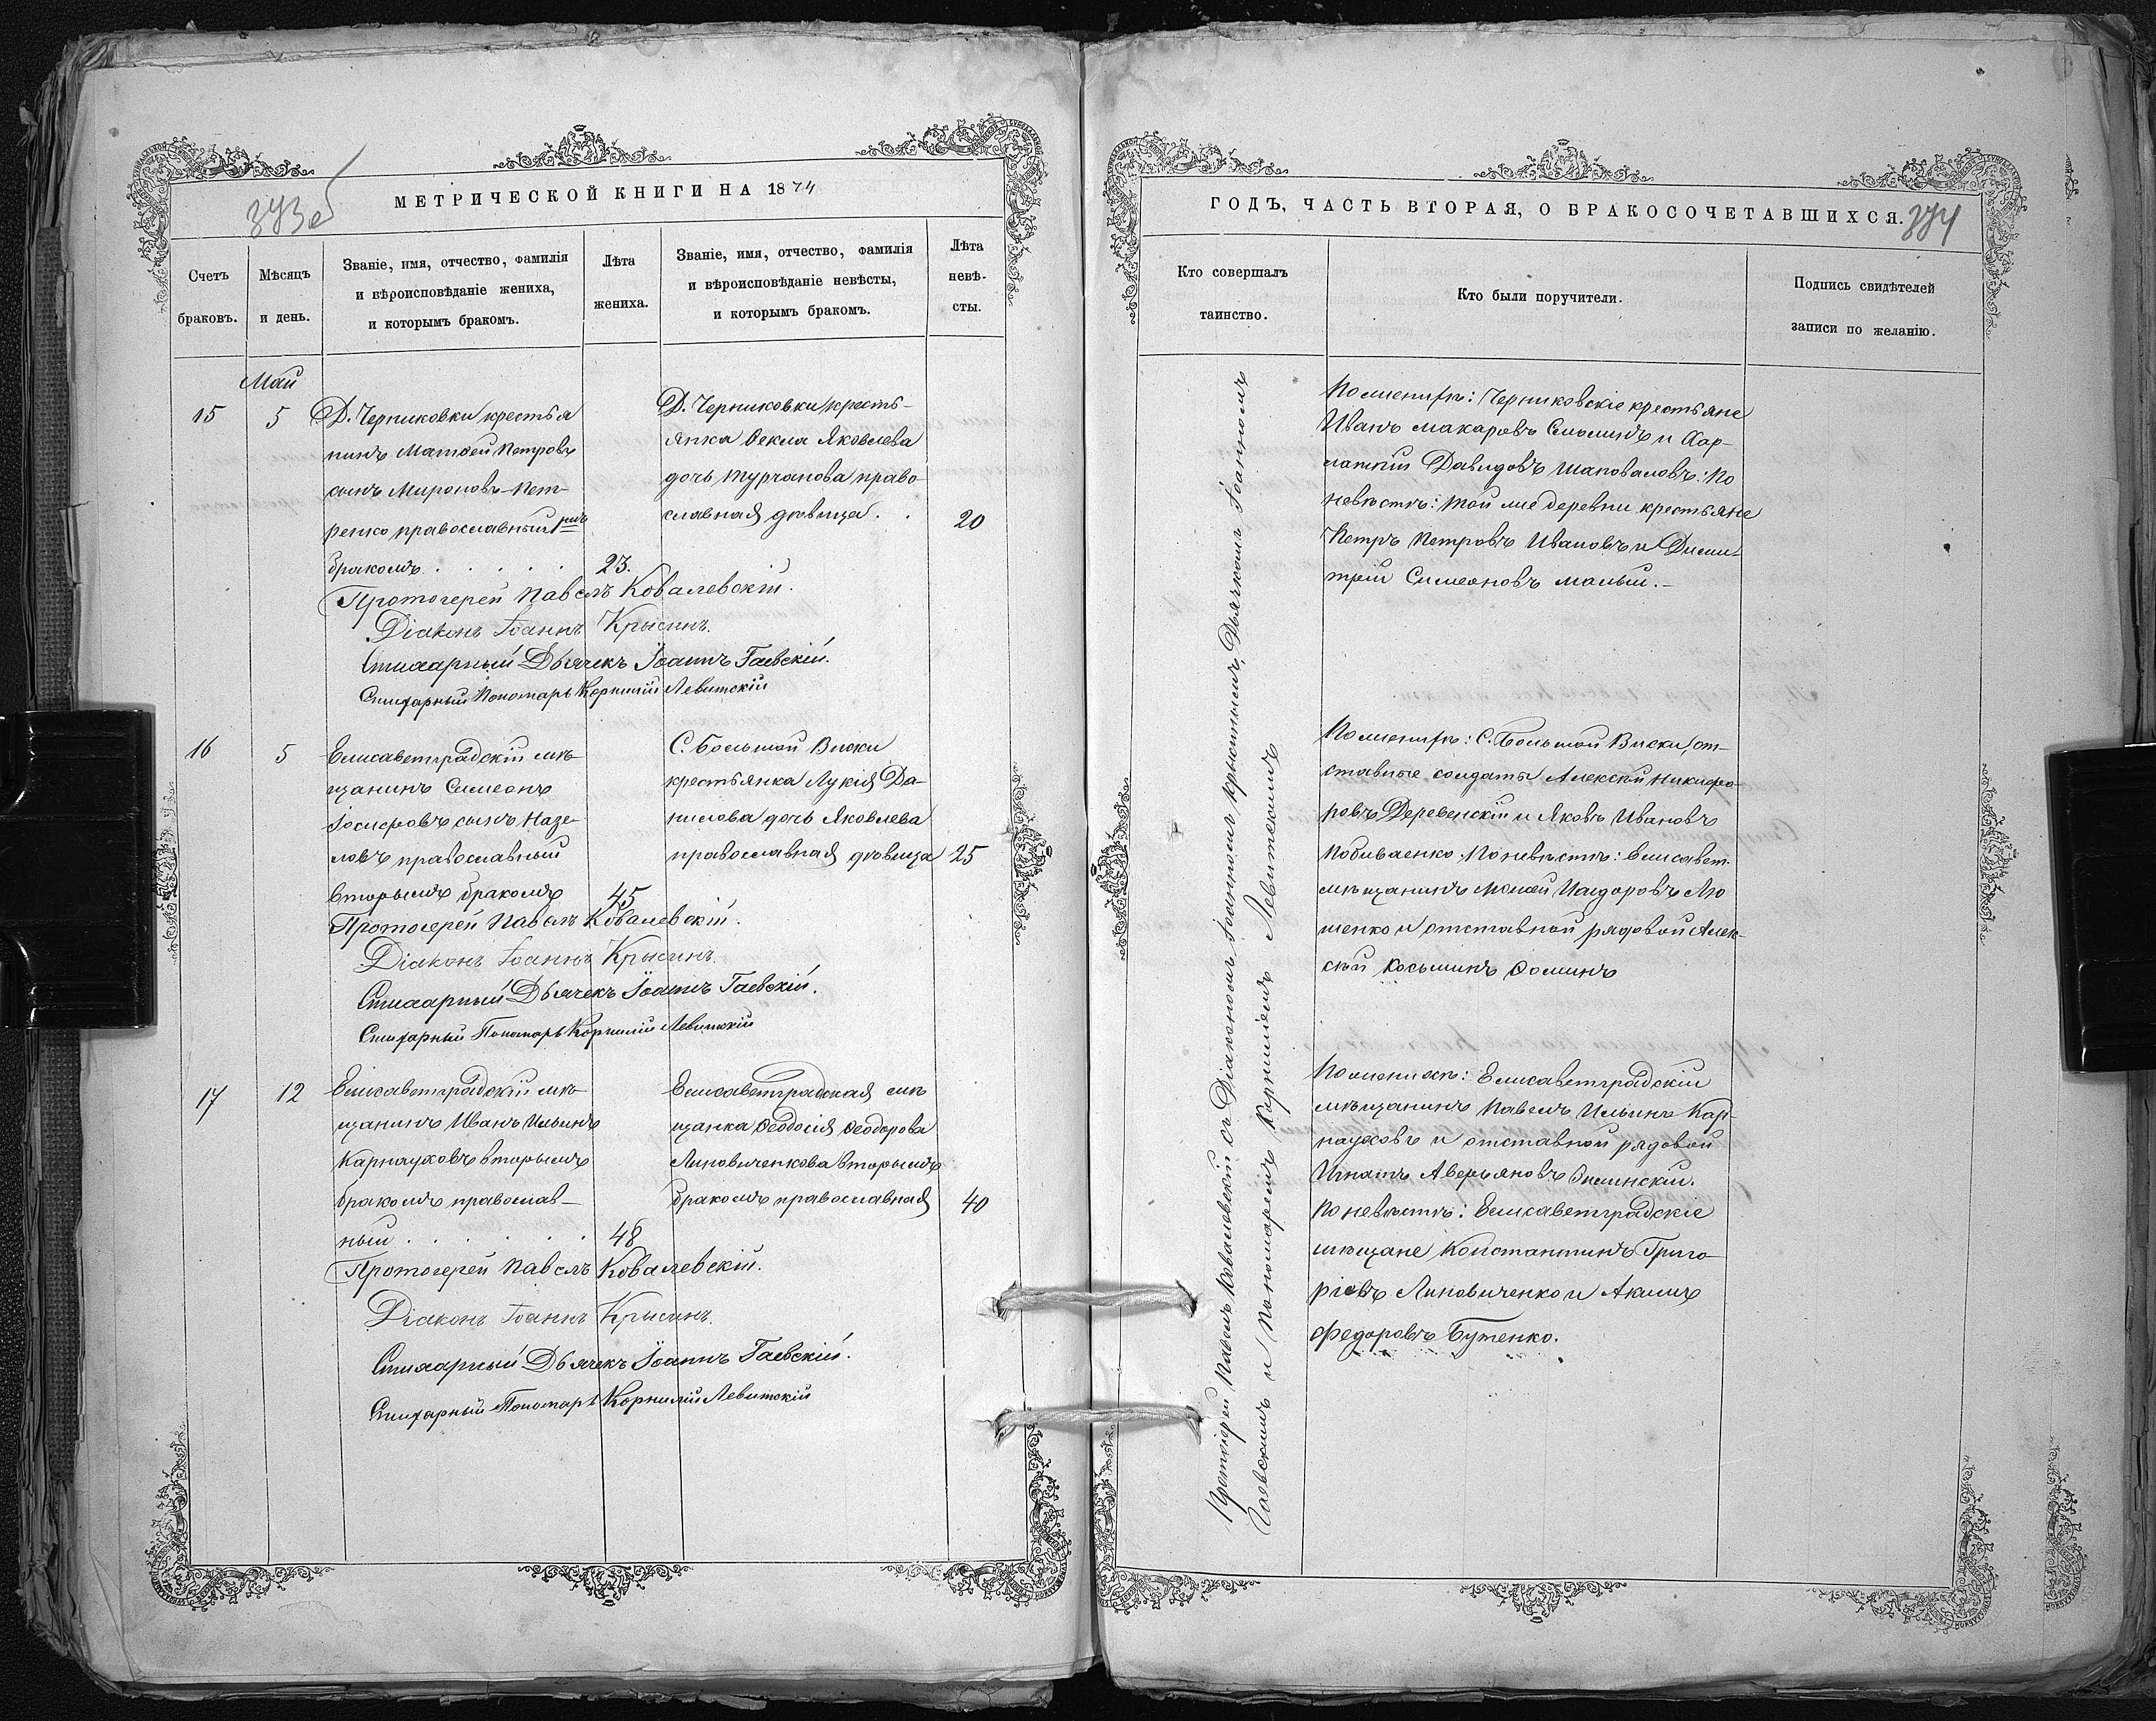 МЕТРИЧЕСКОЙ КНИГИ НА 1874
Счетъ браковъ.
Мѣсяцъ и день.
Званіе, имя, отчество, фамилія
и вѣроисповѣданіе жениха,
и которымъ бракомъ.
Лѣта жениха.
Званіе, имя, отчество, фамилія
и вѣроисповѣданіе невѣсты,
и которымъ бракомъ.
Лѣта невѣ-
сты.
Май
15 5
Д. Черниковки крестья
нинъ Матѳей Петровъ
сынъ Мироновъ-Пет-
ренко православный 1мъ
бракомъ . . . . . 23.
Д. Черниковки кресть-
янка Ѳекла Яковлева
дочь Турчанова право-
славная дѣвица . . 20
Протоіерей Павелъ Ковалевскій.
Діаконъ Іоаннъ Крысинъ.
Стихарный Дьячекъ Іоаннъ Гаевскій.
Стихарный Пономарь Корнилій Левитскій
16 5
Елисаветградскій мѣ-
щанинъ Симеонъ
Іосифовъ сынъ
православный
вторымъ бракомъ 45
С. Большой Виски
крестьянка Лукія Да-
нилова дочь Яковлева
православная дѣвица 25
Протоіерей Павелъ Ковалевскій.
Діаконъ Іоаннъ Крысинъ.
Стихарный Дьячекъ Іоаннъ Гаевскій.
Стихарный Пономарь Корнилій Левитскій
17 12
Елисаветградскій мѣ-
щанинъ Иванъ Ильинъ
Карнауховъ вторымъ
бракомъ православ-
ный . . . . . . 48
Елисаветградская мѣ
щанка Ѳеодосія Ѳеодорова
Линовиченкова вторымъ
бракомъ православная 40
Протоіерей Павелъ Ковалевскій.
Діаконъ Іоаннъ Крысинъ.
Стихарный Дьячекъ Іоаннъ Гаевскій.
Стихарный Пономарь Корнилій Левитскій
ГОДЪ, ЧАСТЬ ВТОРАЯ, О БРАКОСОЧЕТАВШИХСЯ.
Кто совершалъ
таинство.
Кто были поручители.
Подпись свидѣтелей
записи по желанію.
Протоіерей Павелъ Ковалевскій съ Діакономъ Іоанномъ Крысинымъ, Дьячкомъ Іоанномъ
Гаевскимъ и Пономаремъ Корниліемъ Левитскимъ
По женихѣ: Черниковскіе крестьяне
Иванъ Макаровъ и Хар-
лампій Давидовъ Шаповаловъ: По
невѣстѣ: той же деревни крестьяне
Петръ Петровъ Ивановъ и Дими-
трій Симеоновъ Малый.-
По женихѣ: С. Большой Виски, от-
ставные солдаты Алексѣй Никифо-
ровъ Деревенскій и Яковъ Ивановъ
По невѣстѣ: Елисавет.
мѣщанинъ Моисей Исидоровъ Лю
шенко и отставной рядовой Алек-
сѣй Косьминъ Ѳоминъ
По женихѣ: Елисаветградскій
мѣщанинъ Павелъ Ильинъ Кар-
науховъ и отставной рядовой
Игнатъ Аверьяновъ
По невѣстѣ: Елисаветградскіе
мѣщане Константинъ Григо-
ріевъ Линовиченко и Акимъ
Федоровъ Бутенко.